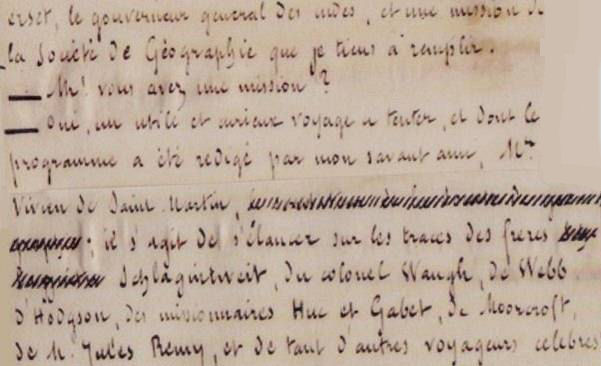 erset, le gouverneur general des indes, et une mission de
la Société de Géographie que je tiens à remplir.
— Mr. vous avez une mission ?
— Oui, un utile et curieux voyage a tenter, et dont le
programme a été redigé par mon savant ami, Mr
Vivien de Saint Martin,
il s'agit de s'élancer sur les traces des freres
Schlagintweit, du colonel Waugh, de Webb
d'Hodgson, des missionnaires Huc et Gabet, de Moorcroft,
de M. Jules Remy, et de tant d'autres voyageurs celebres